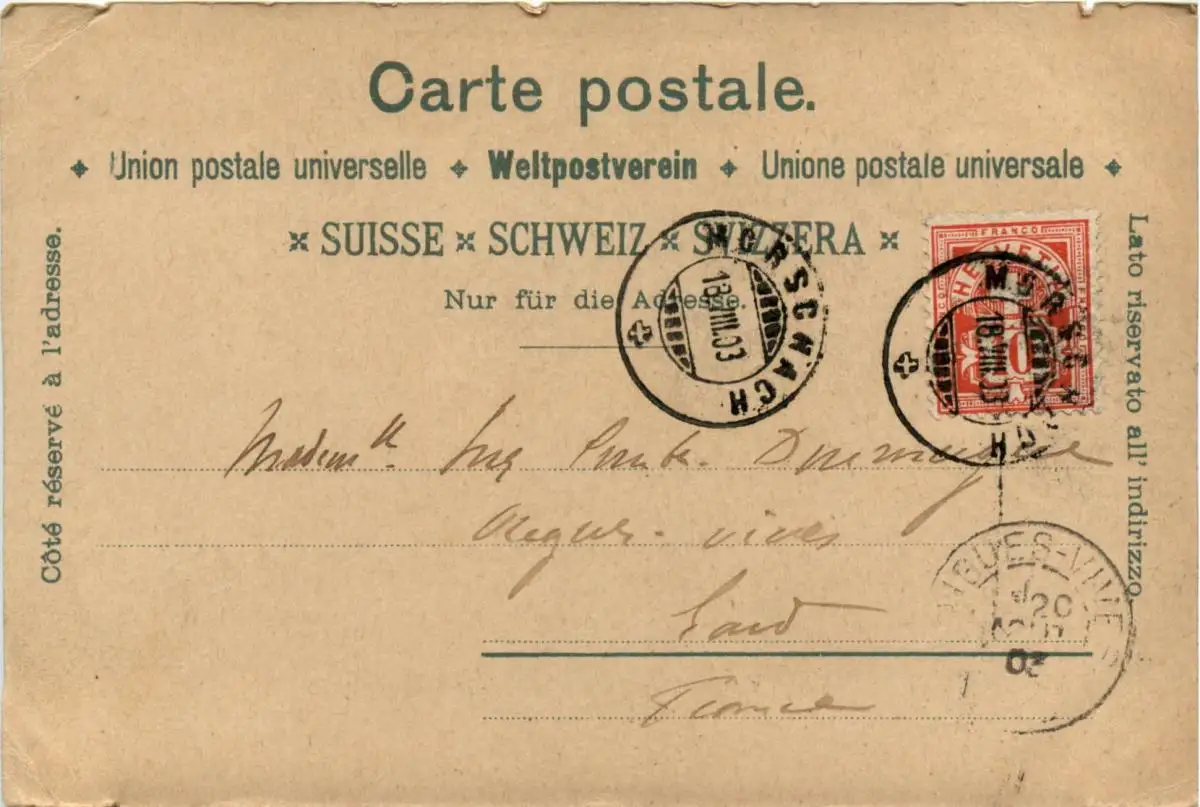 Carte postale.
Union postale universelle Weltpostverein Unione postale universale
SUISSE SCHWEIZ SVIZZERA
Nur für die Adresse.
Côté réservé à l'adresse.
Lato riservato all' indirizzo.
FRANCO
HELVETIA
10
MORSCHACH
18.VIII.03
MORSCHACH
18.VIII.03
Madem<sup>lle</sup>
Aigues-vives
Gard
France
AIGUES-VIVES
20
AOUT
03